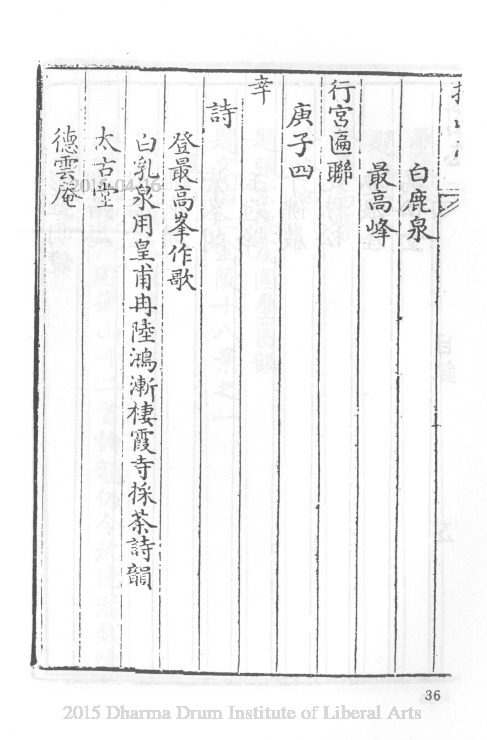 白鹿泉
最高峰
行宮匾聯
庚子四
幸
詩
登最高峯作歌
白乳泉用皇甫冉陸鴻漸棲霞寺採茶詩韻
太古堂
德雲菴
36
2015 Dharma Drum Institute of Liberal Arts